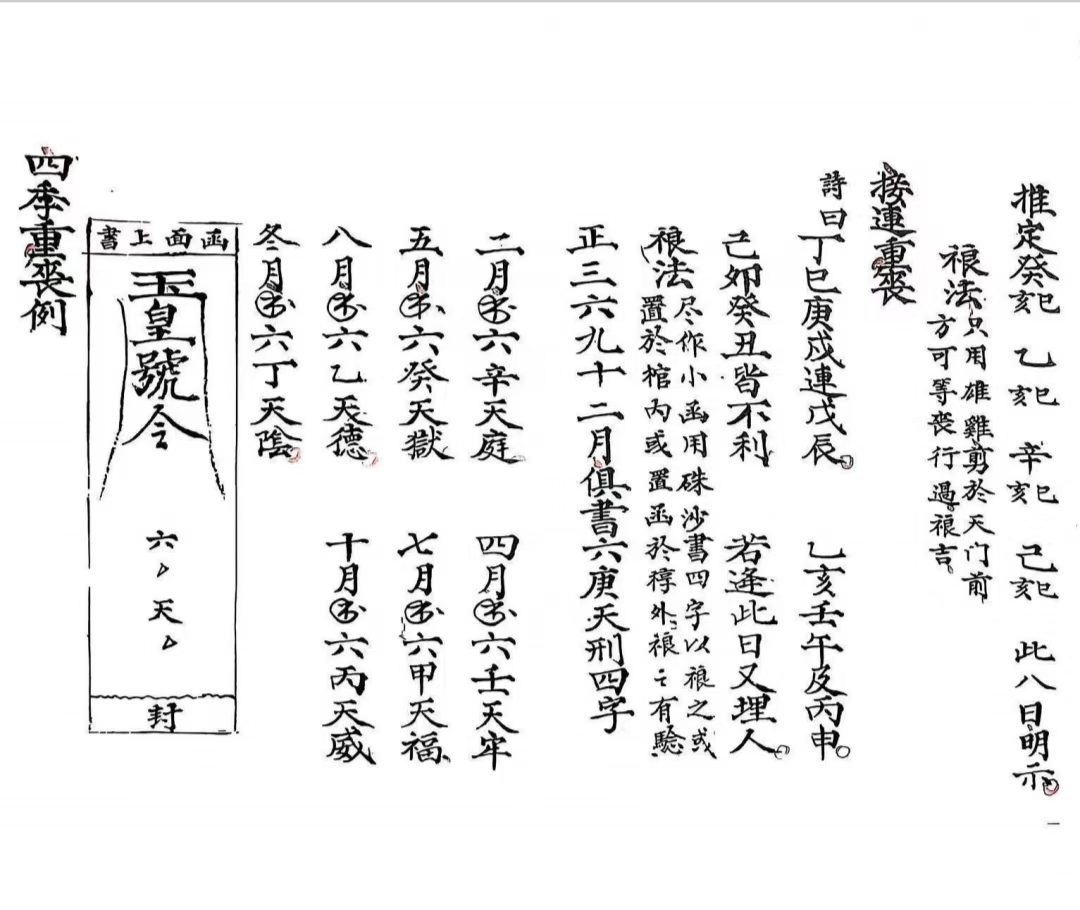 推定癸亥巳 乙亥巳 辛亥巳 己亥巳 此八日明示
禳法只用雄雞剪於天门前
方可等喪行過禳吉
接連重喪
詩曰丁巳庚戍連戊辰 乙亥壬午及丙申
己卯癸丑皆不利 若逢此日又埋人
禳法尽作小函用硃沙書四字以禳之或
置於棺内或置函於㮔外禳之有驗
正三六九十二月俱書六庚天刑四字
二月 六辛天庭 四月 六壬天牢
五月 六癸天獄 七月 六甲天福
八月 六乙天德 十月 六丙天威
冬月 六丁天陰
函面上書
玉皇號令
六 天
封
四季重喪例
一